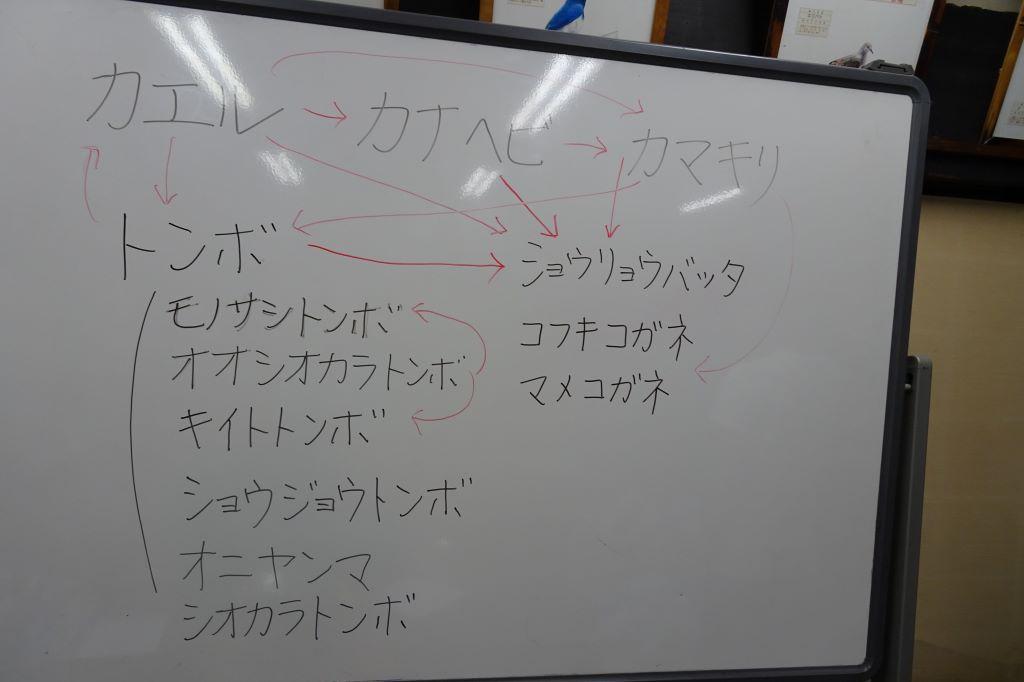 カエル カナヘビ カマキリ
トンボ ショウリョウバッタ
モノサシトンボ コフキコガネ
オオシオカラトンボ マメコガネ
キイトトンボ
ショウジョウトンボ
オニヤンマ
シオカラトンボ